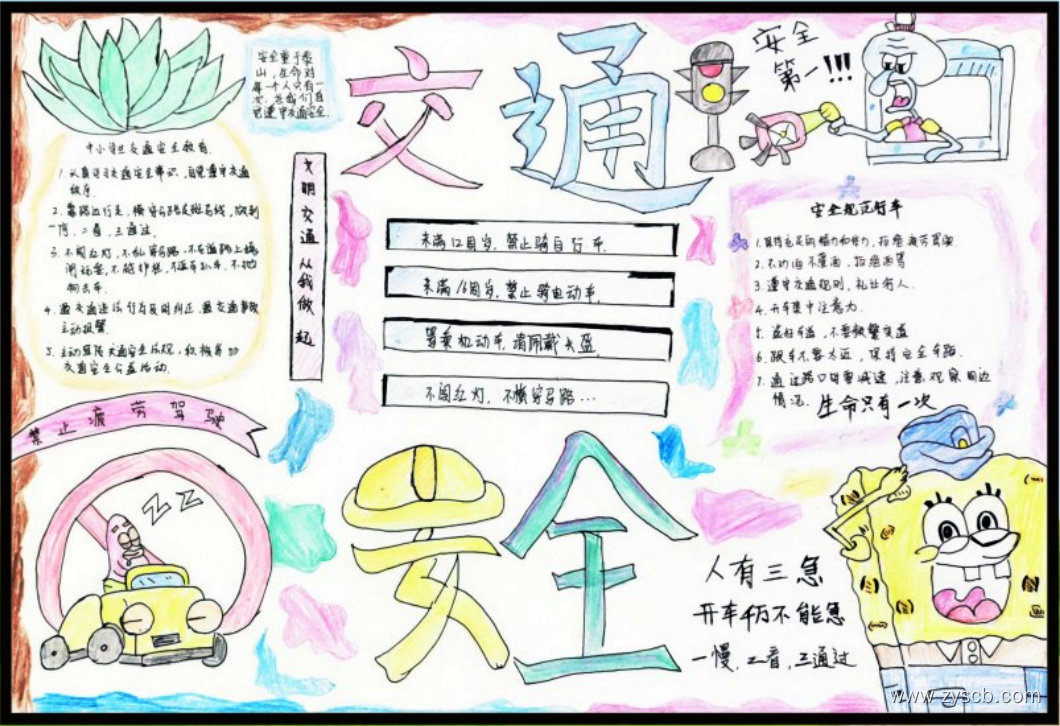 交通
安全
第一!!!
安全重于泰
山，生命对
每一个人只有一
次，让我们自
觉遵守交通安全.
中小学生交通安全教育.
1. 认真学习交通安全常识，自觉遵守交通
秩序.
2. 靠路边行走，横穿马路走斑马线，做到
一停，二看，三通过.
3. 不闯红灯，不乱穿马路，不在道路上嬉
闹玩耍，不越护栏，不追车扒车，不抛
物击车.
4. 遇交通违法行为及时纠正，遇交通事故
主动报警
5. 主动宣传交通安全法规，积极参加
交通安全公益活动.
文明交通从我做起
未满12周岁，禁止骑自行车.
未满16周岁，禁止骑电动车.
驾乘机动车，请佩戴头盔
不闯红灯，不横穿马路…
安全规范行车
1. 保持充足的精力和体力，拒绝疲劳驾驶.
2. 不酒后驾
3. 遵守交通规则，礼让行人.
4. 开车集中注意力.
5. 不要频繁变道
6. 跟车不要太近，保持安全车距.
7. 通过路口时要减速，注意观察周边
情况.
生命只有一次
禁止疲劳驾驶
ZZ
安全
人有三急
开车千万不能急
一慢，二看，三通过
www.zyscb.com